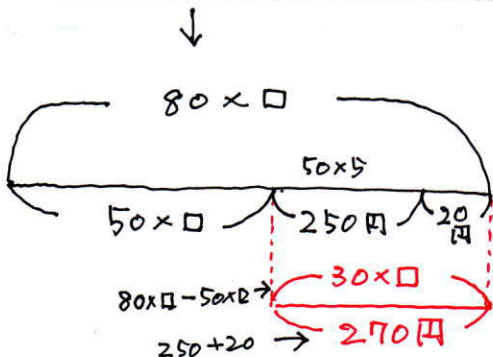 ↓
80×□
50×5
50×□ 250円 20円
80×□-50×□→ 30×□
250+20 → 270円